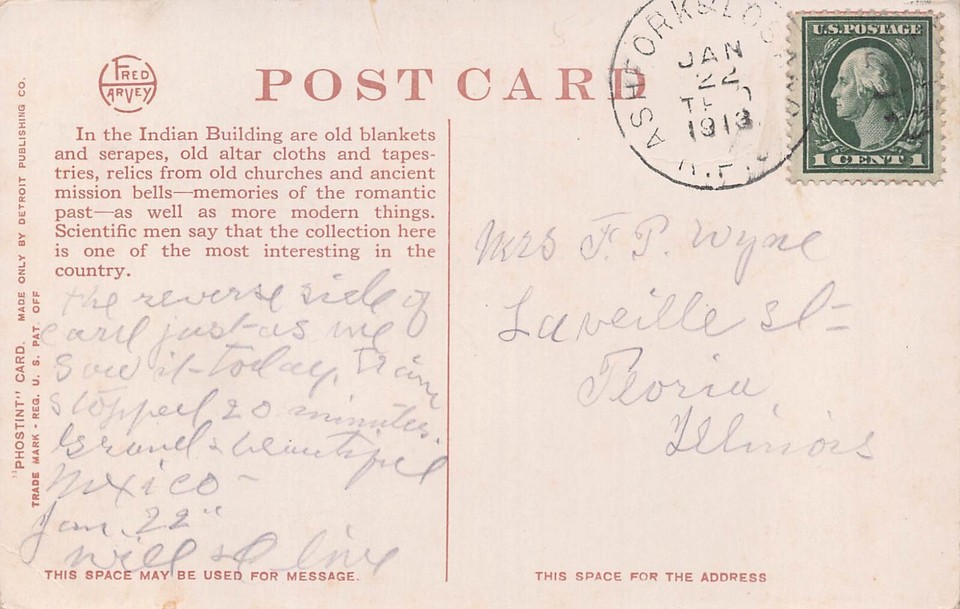 FRED HARVEY
POST CARD
ASH FORK & LOS
JAN
22
1913
R.P.O.
U.S. POSTAGE
1 CENT 1
In the Indian Building are old blankets
and serapes, old altar cloths and tapes-
tries, relics from old churches and ancient
mission bells—memories of the romantic
past—as well as more modern things.
Scientific men say that the collection here
is one of the most interesting in the
country.
the reverse side of
card just as we
saw it today. Train
stopped 20 minutes.
Grand & beautiful
Mexico –
Jan. 22"
Will
Mrs F. P. Wyne
Laveille st
Peoria
Illinois
"PHOSTINT" CARD. MADE ONLY BY DETROIT PUBLISHING CO.
TRADE MARK - REG. U. S. PAT. OFF
THIS SPACE MAY BE USED FOR MESSAGE.
THIS SPACE FOR THE ADDRESS